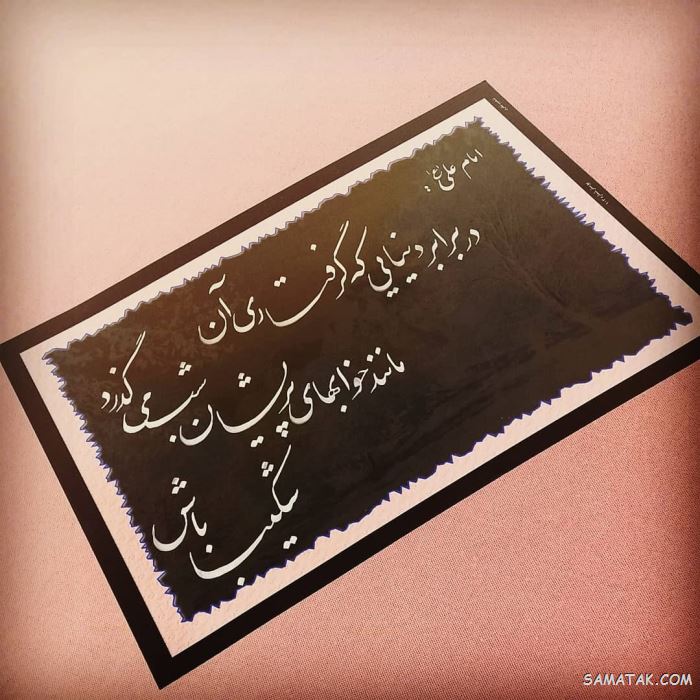 امام علی(ع):
در برابر دنیایی که گرفتاری آن
مانند خوابهای پریشان شب می گذرد
شکیبا باش
SAMATAK.COM